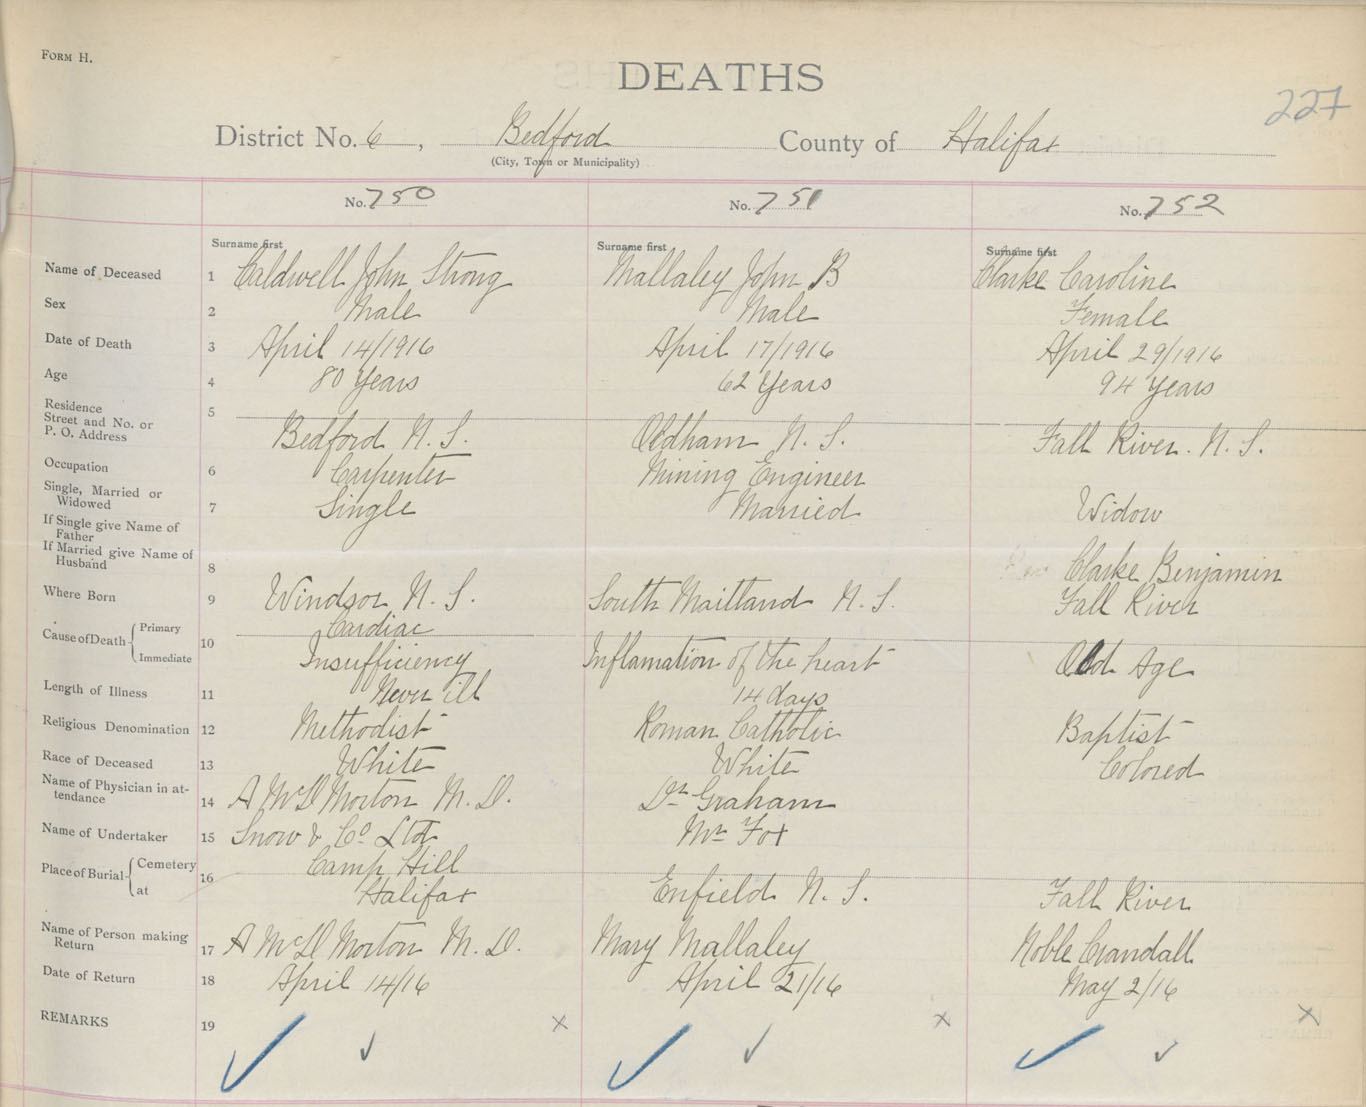 FORM H.
DEATHS
227
District No. 6, Bedford County of Halifax
(City, Town or Municipality)
No. 750 No. 751 No. 752
Surname first Surname first Surname first
Name of Deceased 1 Caldwell John Strong Mallaley John B Clarke Caroline
Sex 2 Male Male Female
Date of Death 3 April 14/1916 April 17/1916 April 29/1916
Age 4 80 Years 62 Years 94 Years
Residence 5
Street and No. or
P. O. Address Bedford N. S. Oldham N. S. Fall River. N. S.
Occupation 6 Carpenter Mining Engineer
Single, Married or
Widowed 7 Single Married Widow
If Single give Name of
Father
If Married give Name of
Husband 8 Clarke Benjamin
Where Born 9 Windsor N. S. South Maitland N. S. Fall River
Cause of Death Primary 10 Cardiac
Immediate Insufficiency Inflamation of the heart Old Age
Length of Illness 11 Never ill 14 days
Religious Denomination 12 Methodist Roman Catholic Baptist
Race of Deceased 13 White White Colored
Name of Physician in at-
tendance 14 A McD Morton M. D. Dr Graham
Name of Undertaker 15 Snow & Co Ltd Mr Fox
Place of Burial Cemetery 16 Camp Hill
at Halifax Enfield N. S. Fall River
Name of Person making
Return 17 A McD Morton M. D. Mary Mallaley Noble Crandall
Date of Return 18 April 14/16 April 21/16 May 2/16
REMARKS 19 x x x